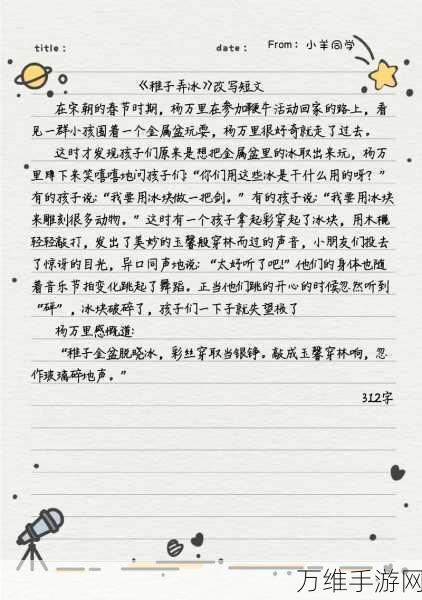 title：
date：
From：小羊同学
《稚子弄冰》改写短文
在宋朝的春节时期，杨万里在参加鞭牛活动回家的路上，看
见一群小孩围着一个金属盆玩耍，杨万里很好奇就走了过去。
这时才发现孩子们原来是想把金属盆里的冰取出来玩，杨万
里蹲下来笑嘻嘻地问孩子们：“你们用这些冰是干什么用的呀？”
有的孩子说：“我要用冰块做一把剑。”有的孩子说：“我要用冰块
来雕刻很多动物。”这时有一个孩子拿起彩穿起了冰块，用木槌
轻轻敲打，发出了美妙的玉磬般穿林而过的声音，小朋友们投去
了惊讶的目光，异口同声地说：“太好听了吧！”他们的身体也随
着音乐节拍变化跳起了舞蹈。正当他们跳的开心的时候忽然听到
“砰”，冰块破碎了，孩子们一下子就失望极了
杨万里感慨道：
“稚子金盆脱晓冰，彩丝穿取当银铮。敲成玉磬穿林响，忽
作玻璃碎地声。”
312字
万维手游网